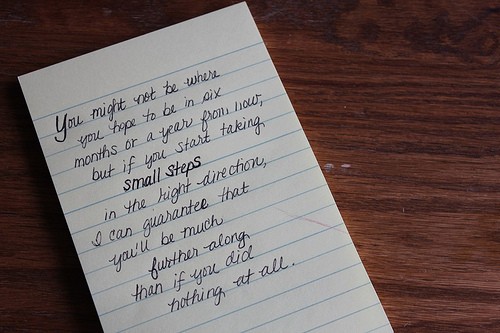 You might not be where
you hope to be in six
months or a year from now,
but if you start taking
small steps
in the right direction,
I can guarantee that
you'll be much
further along
than if you did
nothing at all.